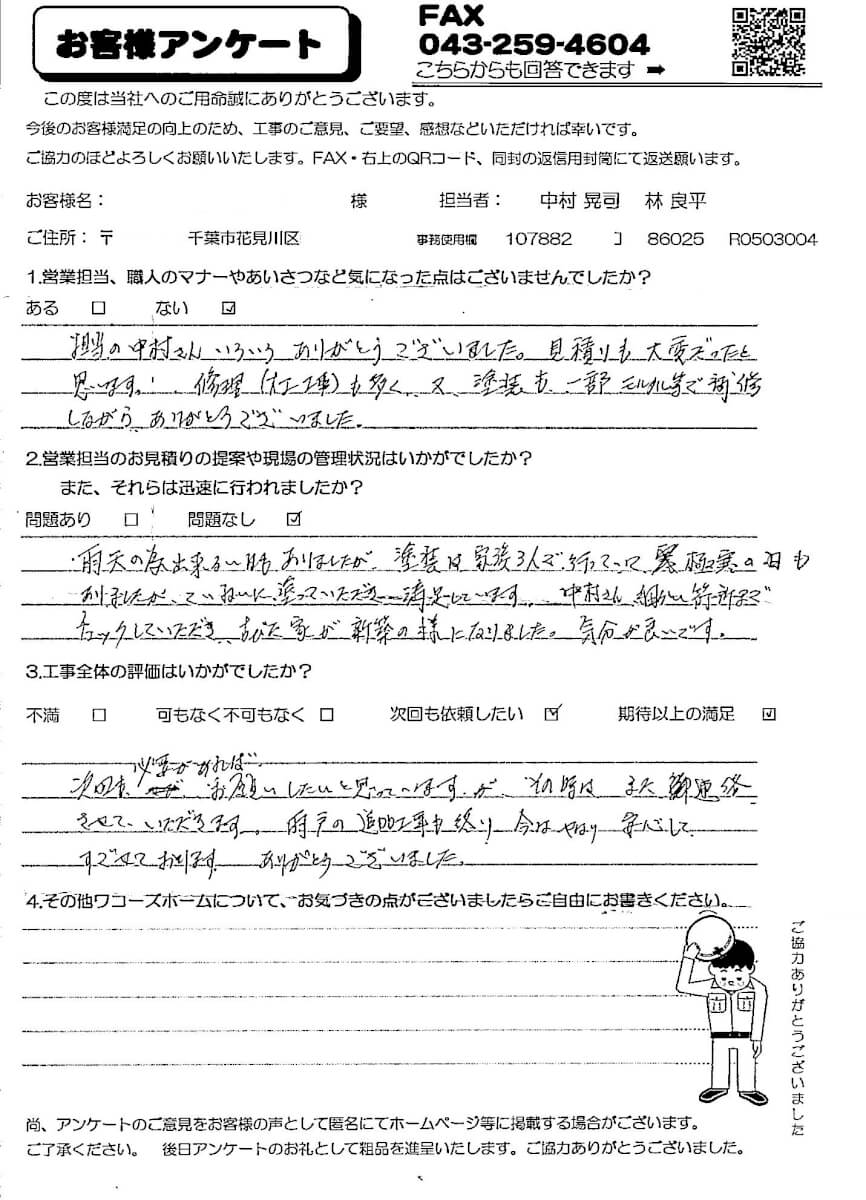 お客様アンケート
FAX
043-259-4604
こちらからも回答できます ➡
この度は当社へのご用命誠にありがとうございます。
今後のお客様満足の向上のため、工事のご意見、ご要望、感想などいただければ幸いです。
ご協力のほどよろしくお願いいたします。FAX・右上のQRコード、同封の返信用封筒にて返送願います。
お客様名： 様 担当者： 中村 晃司 林 良平
ご住所：〒 千葉市花見川区 事務使用欄 107882 コ 86025 R0503004
1.営業担当、職人のマナーやあいさつなど気になった点はございませんでしたか？
ある □ ない ☑
担当の中村さんいろいろありがとうございました。見積りも大変だったと
思います。! 修理(大工工事)も多く、又、塗装も一部モルタル等で補修
しながら、ありがとうございました。
2.営業担当のお見積りの提案や現場の管理状況はいかがでしたか？
また、それらは迅速に行われましたか？
問題あり □ 問題なし ☑
雨天の為出来ない日もありましたが、塗装は家族3人で行っていて 極寒の日も
ありましたが、ていねいに塗っていただき 満足しています。中村さん 細かい箇所まで
チェックしていただき、古びた家が新築の様になりました。気分が良いです。
3.工事全体の評価はいかがでしたか？
不満 □ 可もなく不可もなく □ 次回も依頼したい ☑ 期待以上の満足 ☑
次回も、必要があれば お願いしたいと思っていますが、その時は また御連絡
させていただきます。雨戸の追加工事も終り 今はやはり 安心して
すごせております。ありがとうございました。
4.その他ワコーズホームについて、お気づきの点がございましたらご自由にお書きください。
ご協力ありがとうございました
尚、アンケートのご意見をお客様の声として匿名にてホームページ等に掲載する場合がございます。
ご了承ください。 後日アンケートのお礼として粗品を進呈いたします。ご協力ありがとうございました。